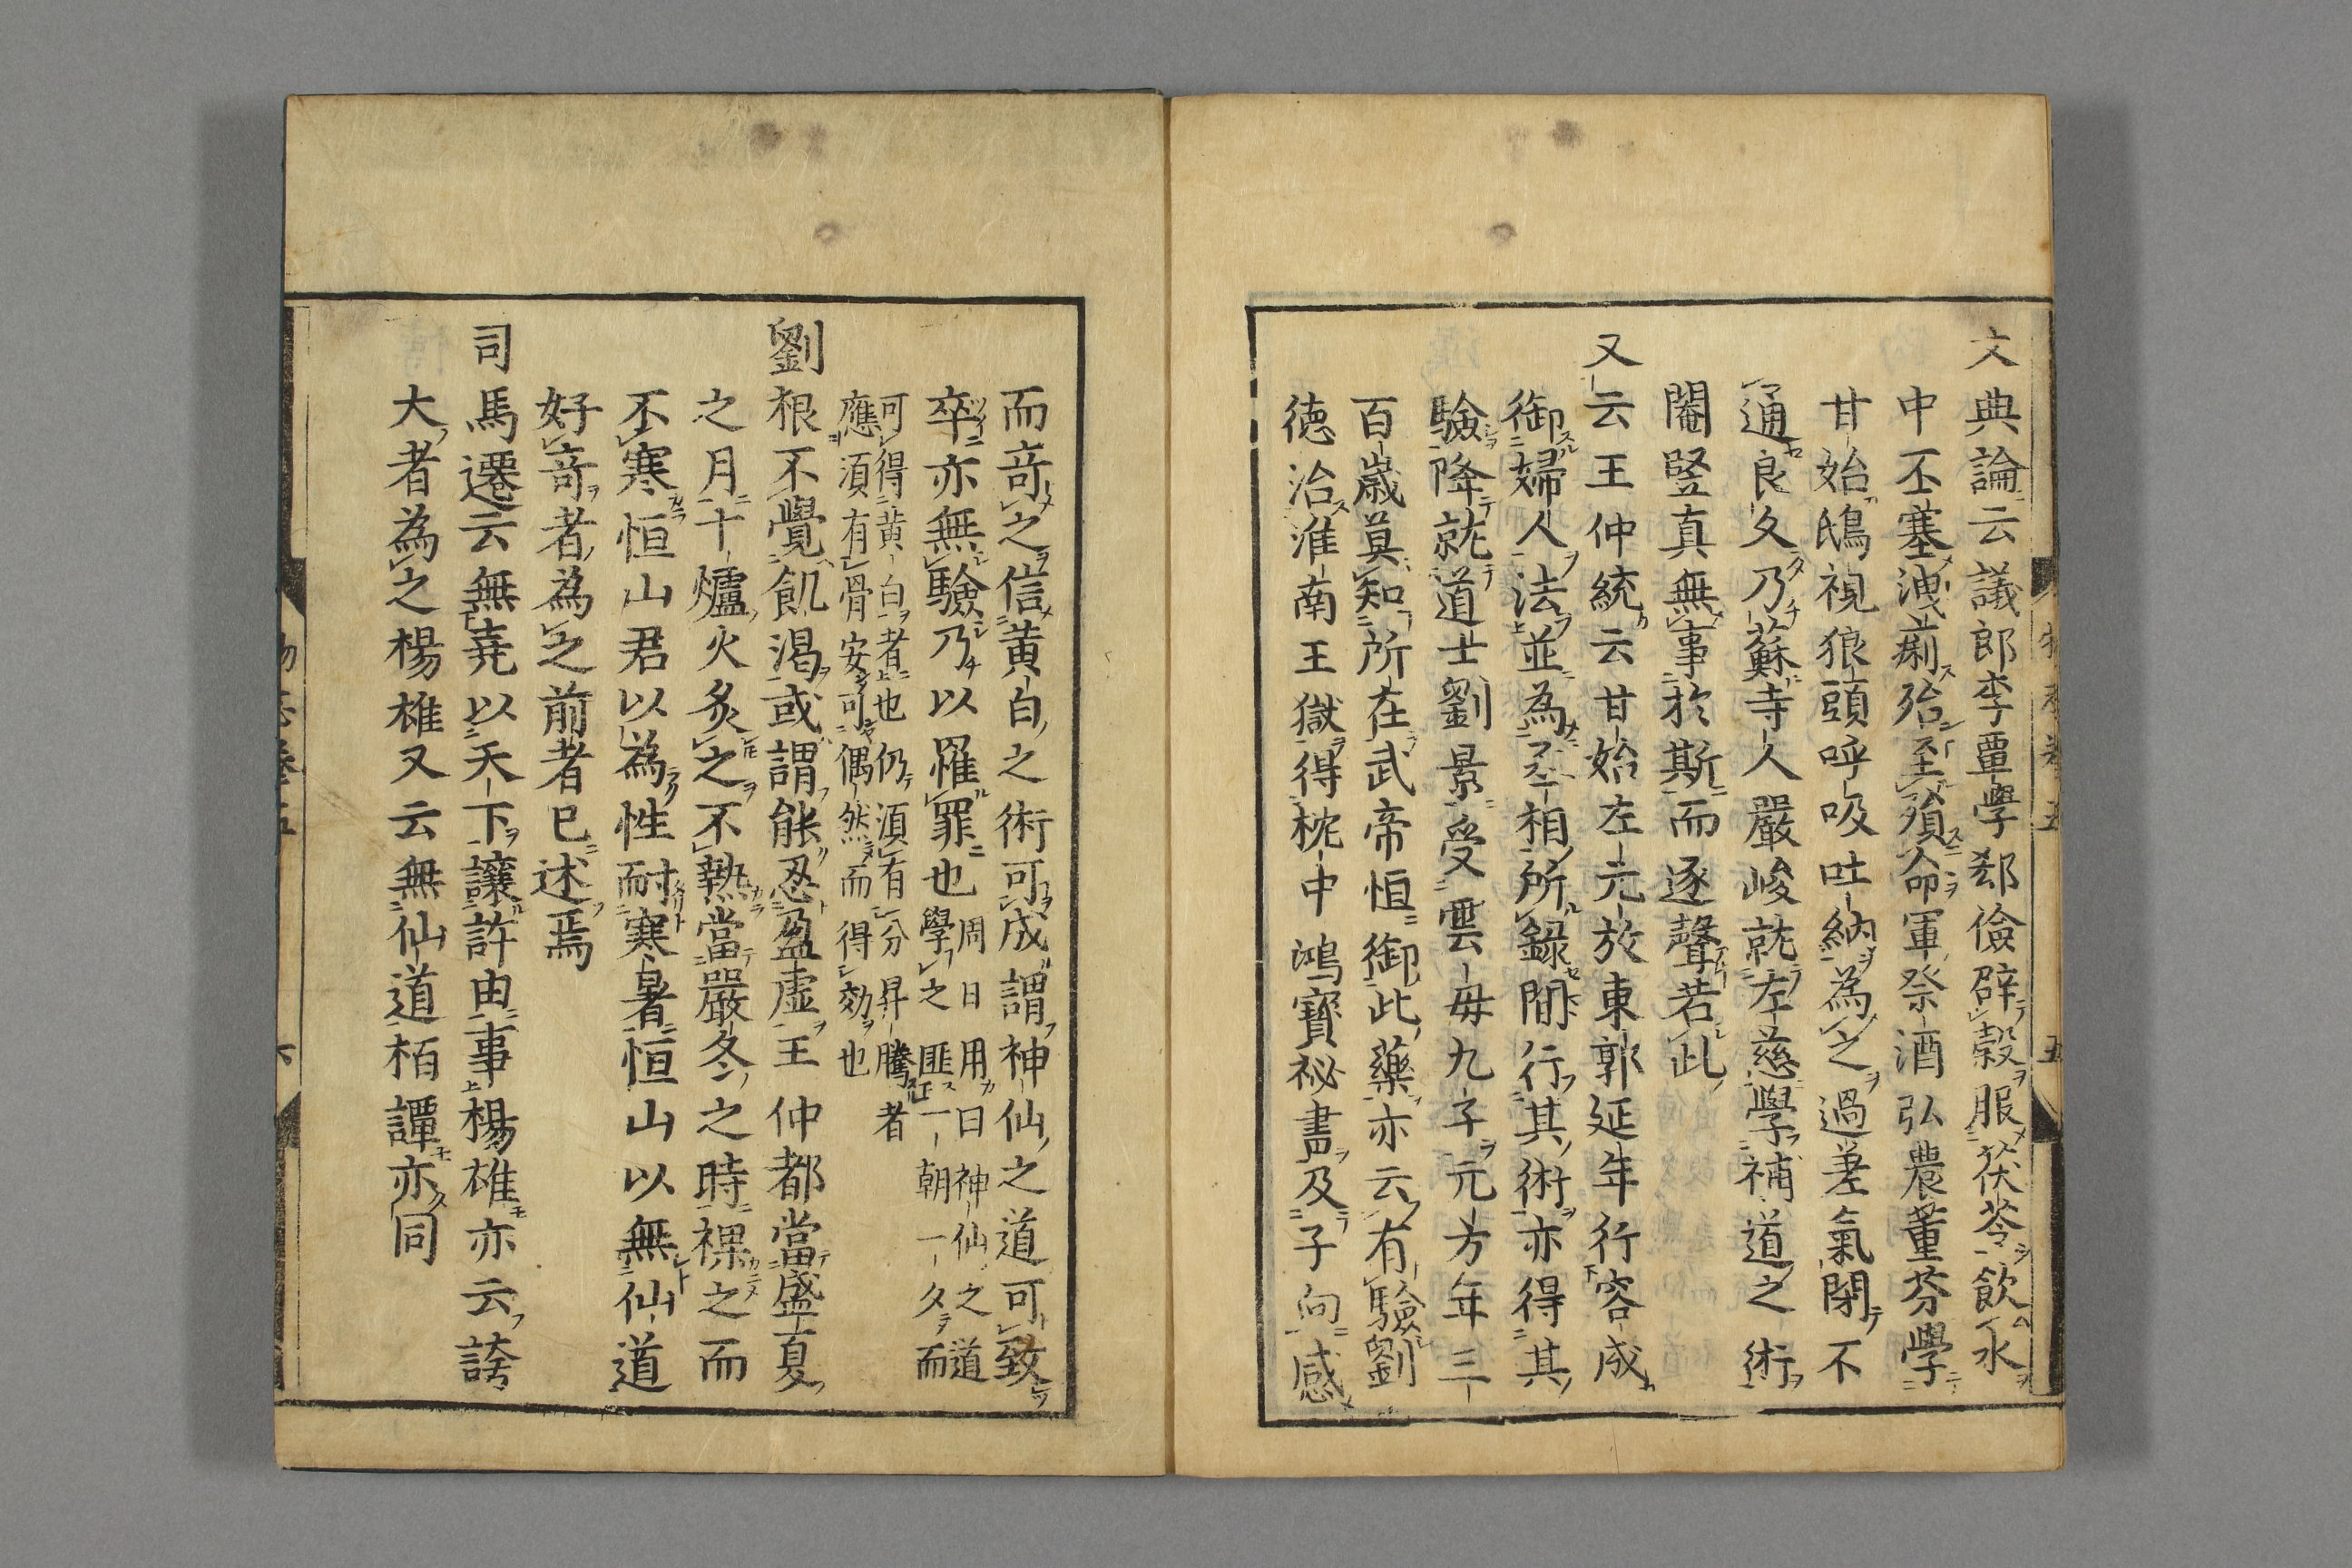 文典論云議郎李覃學郄儉辟穀服茯苓飲水
中不塞洩痢殆至殞命軍祭酒弘農董芬學
甘始鴟視狼頭呼吸吐納為之過差氣閉不
通良久乃蘇寺人嚴峻就左慈學補道之術
閹竪真無事於斯而逐聲若此
又云王仲統云甘始左元放東郭延年行容成
御婦人法並為丞相所錄間行其術亦得其
驗降就道士劉景受雲母九子元方年三
百歲莫知所在武帝恒御此藥亦云有驗劉
德治淮南王獄得枕中鴻寶祕書及子向感
而竒之信黄白之術可成謂神仙之道可致
卒亦無驗乃以罹罪也
周日用曰神仙之道
學之匪一朝一夕而
可得黄白者也仍須有分昇騰者
應須有骨安可偶然而得効也
劉根不覺飢渴或謂能忍盈虛王仲都當盛夏
之月十爐火炙之不熱當嚴冬之時裸之而
不寒恒山君以為性耐寒暑恒山以無仙道
好竒者為之前者已述焉
司馬遷云無堯以天下讓許由事楊雄亦云誇
大者為之楊雄又云無仙道栢譚亦同